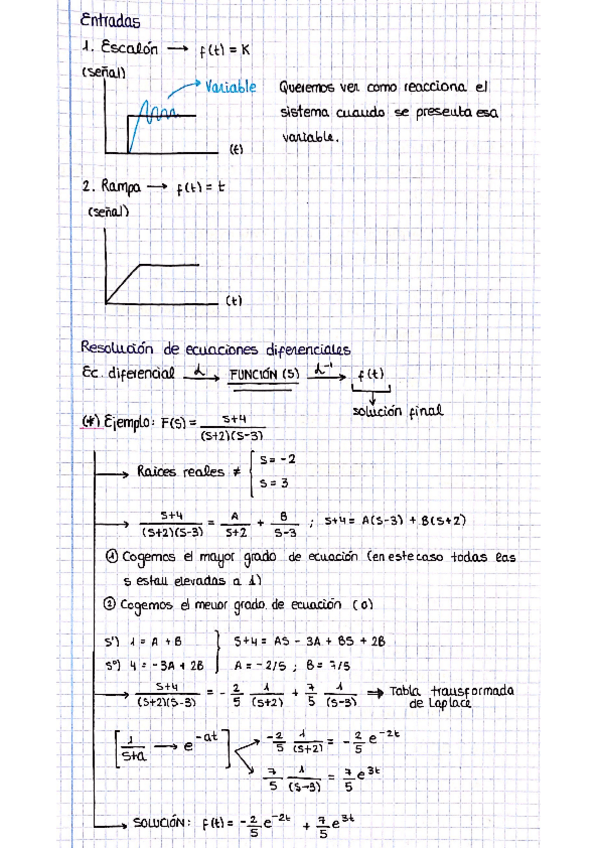 Entradas
1. Escalón → f(t) = K
(señal)
Variable
Queremos ver como reacciona el
sistema cuando se presenta esa
variable.
(t)
2. Rampa → f(t) = t
(señal)
(t)
Resolución de ecuaciones diferenciales
Ec. diferencial —ℒ→ FUNCIÓN (S) —ℒ⁻¹→ f(t)
solución final
(*) Ejemplo: F(S) = (S+4)/((S+2)(S-3))
→ Raices reales ≠ { S = -2
S = 3
→ (S+4)/((S+2)(S-3)) = A/(S+2) + B/(S-3) ; S+4 = A(S-3) + B(S+2)
① Cogemos el mayor grado de ecuación (en este caso todas las
s estan elevadas a 1)
② Cogemos el menor grado de ecuación (0)
S¹) 1 = A + B } S+4 = AS - 3A + BS + 2B
S⁰) 4 = -3A + 2B } A = -2/5 ; B = 7/5
→ (S+4)/((S+2)(S-3)) = - 2/5 1/(S+2) + 7/5 1/(S-3) ⇒ Tabla transformada
de Laplace
[1/(S+a) → e^-at]
-2/5 1/(S+2) = -2/5 e^-2t
7/5 1/(S-3) = 7/5 e^3t
→ SOLUCIÓN: f(t) = -2/5 e^-2t + 7/5 e^3t